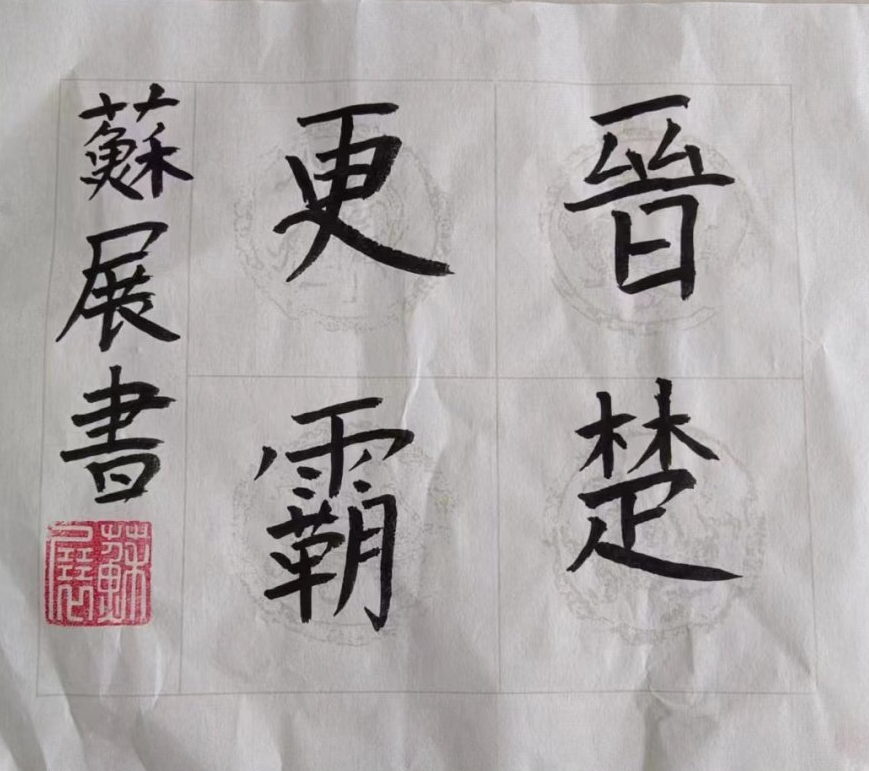 晉楚
更霸
蘇展書
蘇展